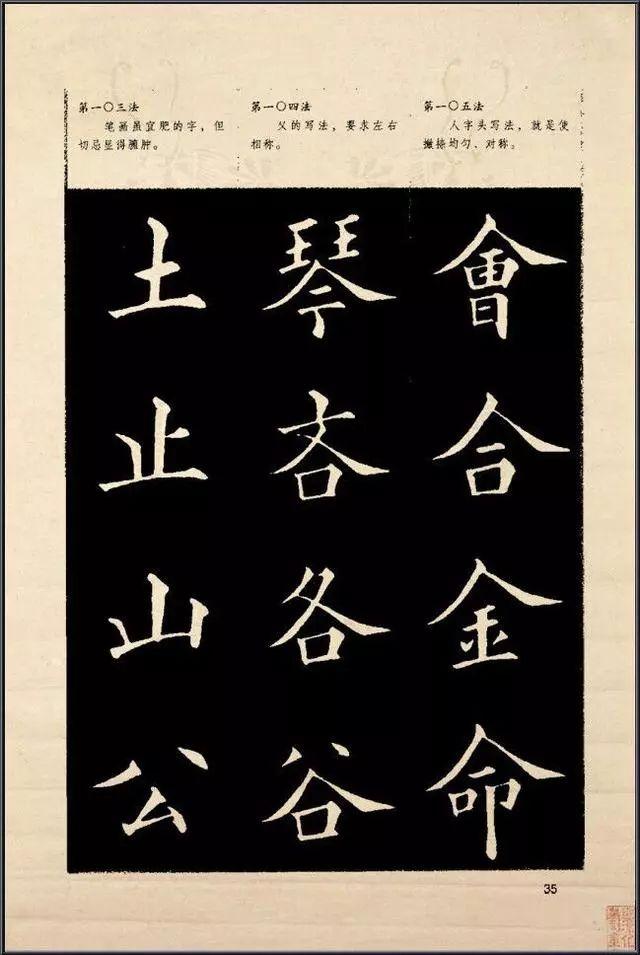 第一〇三法
笔画虽宜肥的字，但
切忌显得臃肿。
第一〇四法
的写法，要求左右
相称。
第一〇五法
人字头写法，就是使
撇捺均匀、对称。
土止山公
琴吝各谷
會合金命
35